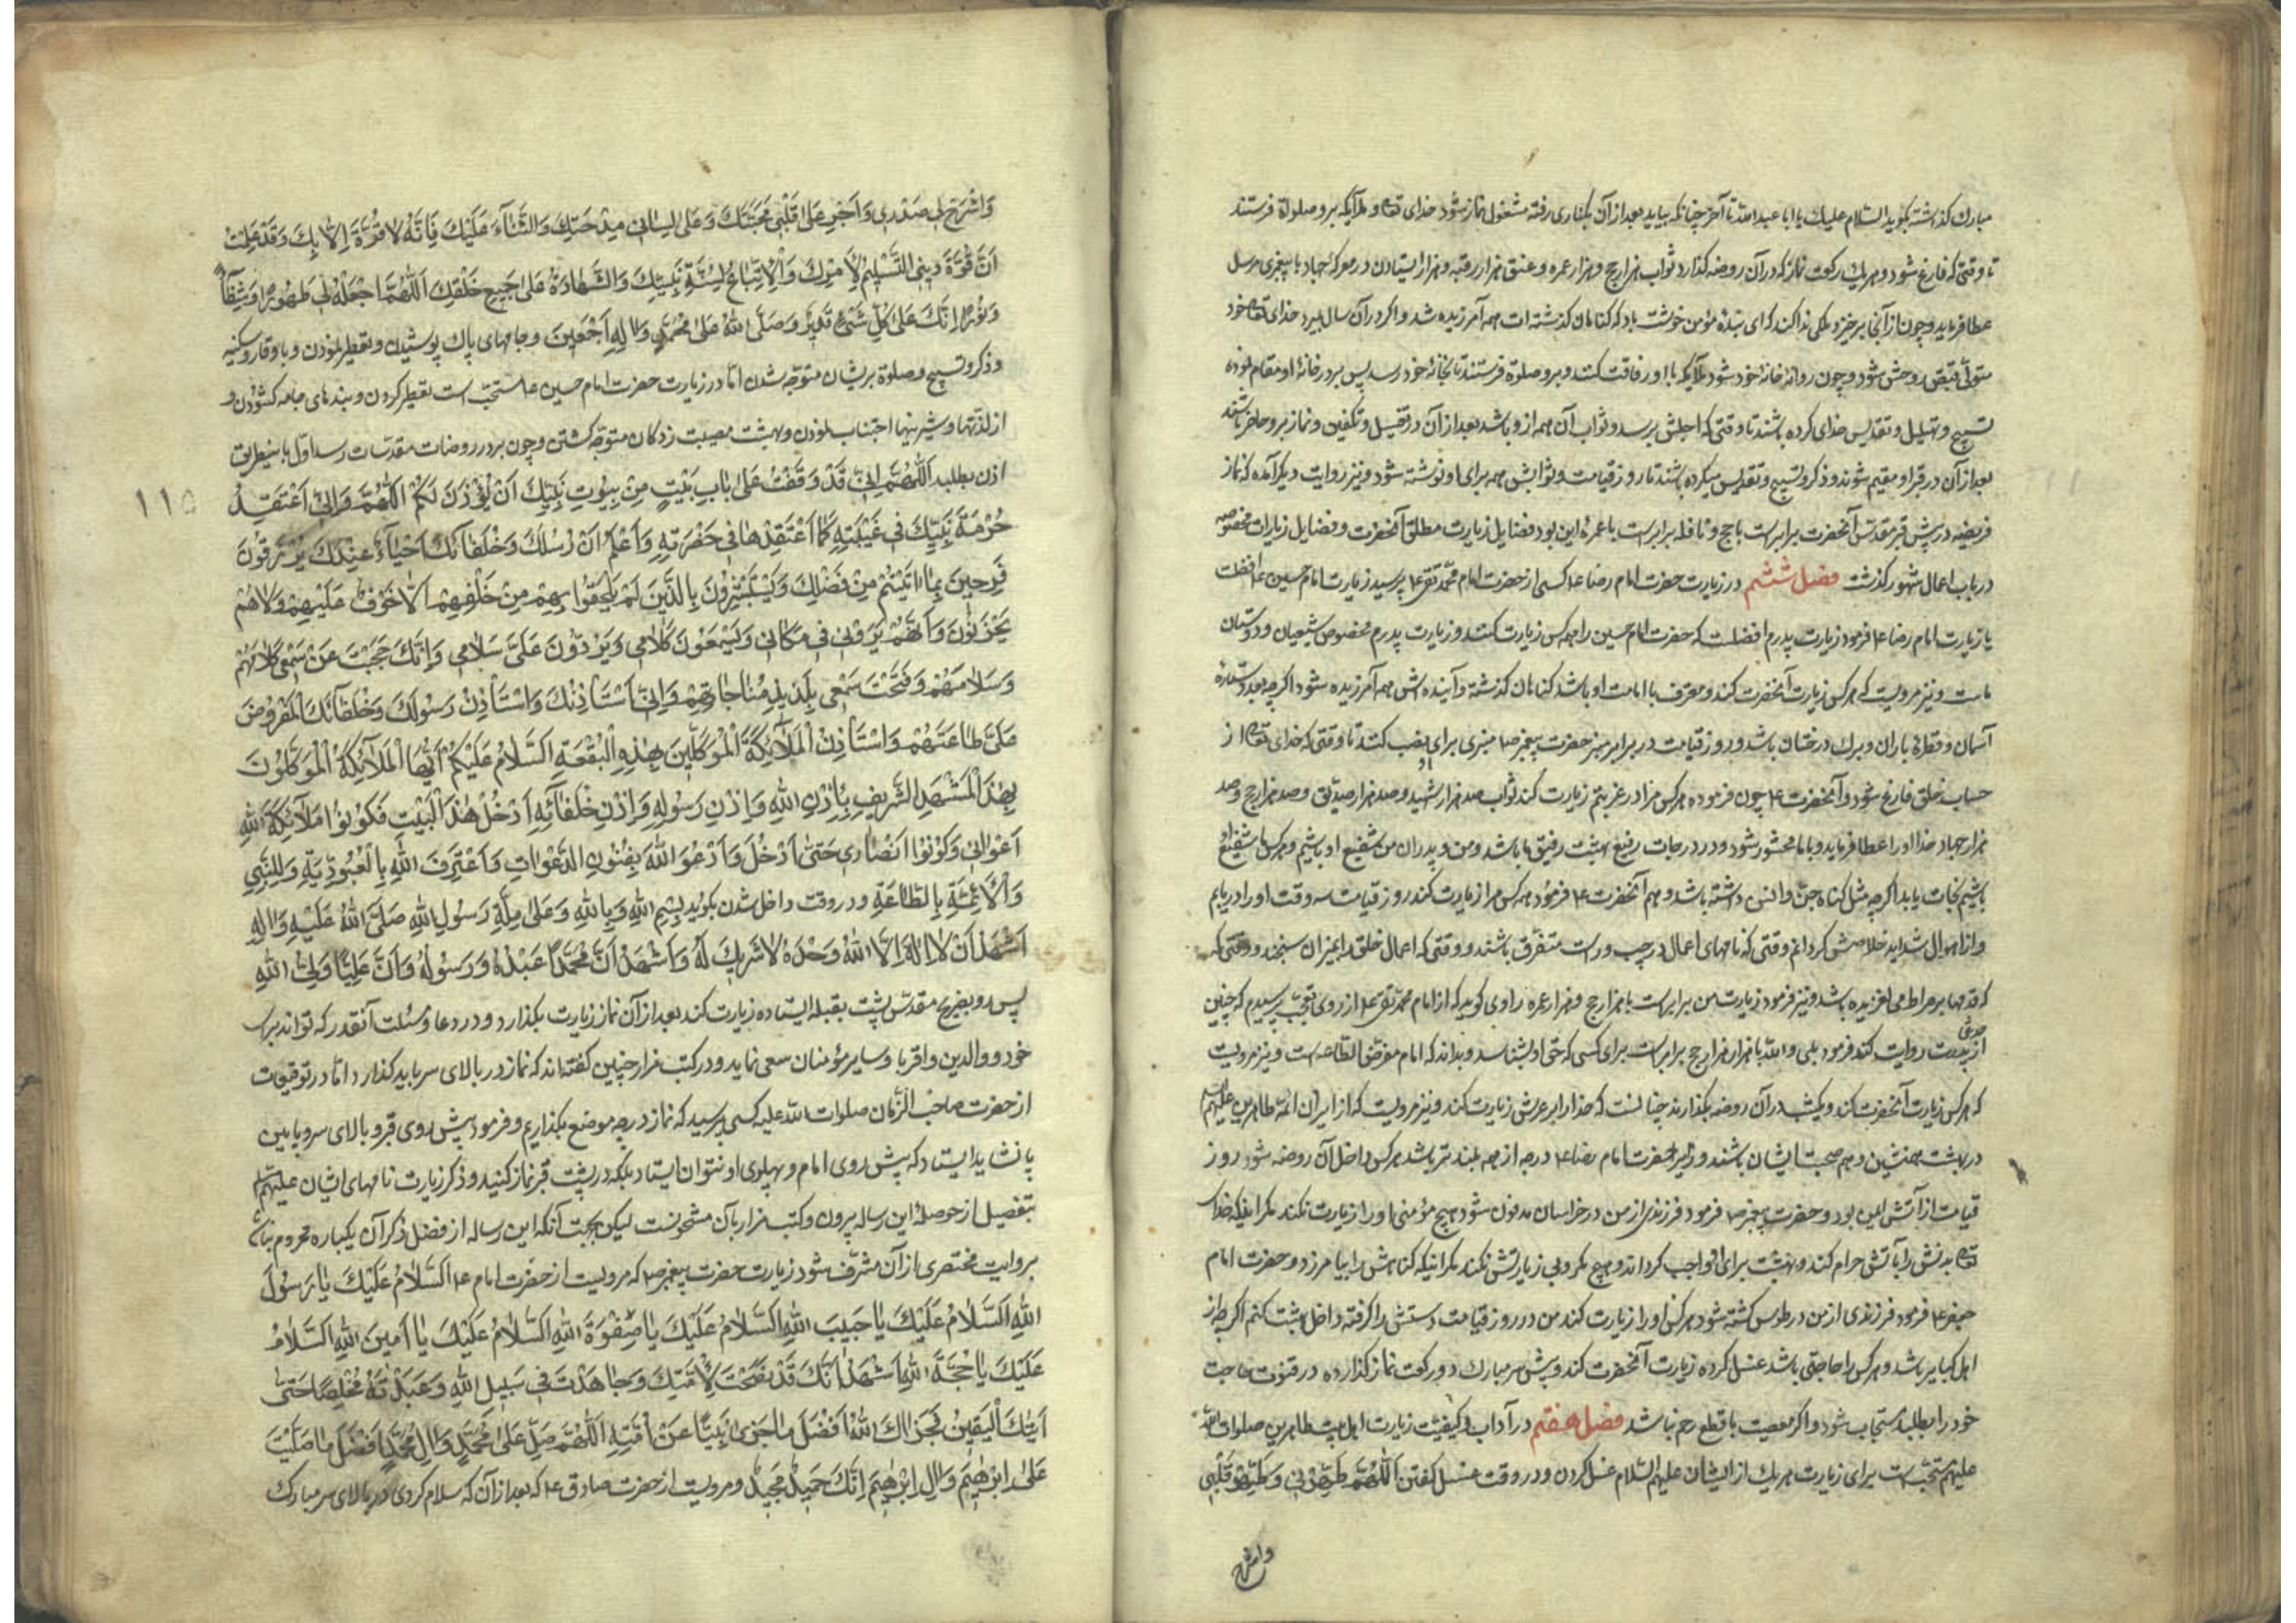 مبارک گذاشته بگوید السّلام علیک یا ابا عبدالله تا آخر چنانکه بیاید بعد از آن بکناری رفته مشغول نماز شود خدای تعا و ملائکه برو صلواة فرستند
تا وقتی که فارغ شود و بهر یک رکعت نماز که در آن روضه گذارد ثواب هزار حج و هزار عمره و عتق هزار رقبه و هزار ایستادن در معرکه جهاد با پیغمبری مرسل
عطا فرماید و چون از آنجا برخیزد ملکی ندا کند که ای بندهٔ مؤمن خوشت باد که گناهان گذشته ات همه آمرزیده شد و اگر در آن سال بمیرد خدای تعا خود
متولّی قبض روحش شود و چون روانهٔ خانهٔ خود شود ملائکه با او رفاقت کنند و برو صلوة فرستند تا بخانهٔ خود رسد پس بر در خانهٔ او مقام نموده
تسبیح و تهلیل و تقدیس خدای کرده باشند تا وقتی که اجلش برسد و ثواب آن همه از و باشد بعد از آن در تغسیل و تکفین و نماز برو حاضر باشند
بعد از آن در قبر او مقیم شوند و ذکر و تسبیح و تقدیس میکرده باشند تا روز قیامت و ثوابش همه برای او نوشته شود و نیز روایت دیگر آمده که نماز
فریضه در پیش قبر مقدّس آنحضرت برابرست با حج و نافله برابرست با عمره این بود فضایل زیارت مطلق آنحضرت و فضایل زیارات مخصوصه
در باب اعمال شهور گذشت فصل ششم در زیارت حضرت امام رضا ع کسی از حضرت امام محمّد تقی ع پرسید زیارت امام حسین ع افضلست
یا زیارت امام رضا ع فرمود زیارت پدرم افضلست که حضرت امام حسین را همه کس زیارت کنند و زیارت پدرم مخصوص شیعیان و دوستان
ماست و نیز مرویست که هر کس زیارت آنحضرت کند و معترف با امامت او باشد گناهان گذشته و آینده اش همه آمرزیده شود اگرچه بعدد ستارهٔ
آسمان و قطرهٔ باران و برگ درختان باشد و روز قیامت در برابر منبر حضرت پیغمبر ص منبری برای او نصب کنند تا وقتی که خدای تعا از
حساب خلق فارغ شود و آنحضرت ع چون فرموده هر کس مرا در غربتم زیارت کند ثواب صد هزار شهید و صد هزار صدّیق و صد هزار حج و صد
هزار جهاد خدا او را عطا فرماید و با ما محشور شود و در درجات رفیع بهشت رفیق ما باشد و من و پدران من شفیع او باشیم و هر کس ما شفیع او
باشیم نجات یابد اگر چه مثل گناه جنّ و انس داشته باشد و هم آنحضرت ع فرمود هر کس مرا زیارت کند روز قیامت سه وقت او را دریابم
و از اهوال شداید خلاصش گردانم وقتی که نامهای اعمال در چپ و راست متفرّق باشند و وقتی که اعمال خلق را بمیزان سنجند و وقتی که
که قدمها بر صراط می لغزیده باشد و نیز فرمود زیارت من برابرست با هزار حج و هزار عمره راوی گوید که از امام محمّد تقی ع از روی تعجّب پرسیدم که چنین
حدیثی
از پدرت روایت کنند فرمود بلی والله با هزار هزار حج برابرست برای کسی که حق او بشناسد و بداند که امام مفترض الطّاعه است و نیز مرویست
که هر کس زیارت آنحضرت کند و یکشب در آن روضه بگذارند چنانست که خدا را بر عرش زیارت کند و نیز مرویست که از زایران ائمّهٔ طاهرین علیهم السّلم
در بهشت همنشین و هم صحبت ایشان باشند و زایر حضرت امام رضا ع درجه از همه بلندتر باشد هر کس داخل آن روضه شود روز
قیامت از آتش ایمن بود و حضرت پیغمبر ص فرمود فرزندی از من در خراسان مدفون شود هیچ مؤمنی او را زیارت نکند مگر اینکه خدای
تعا بدنش را بآتش حرام کند و بهشت برای او واجب گرداند و هیچ مکروبی زیارتش نکند مگر اینکه گناهش را بیامرزد و حضرت امام
جعفر ع فرمود فرزندی از من در طوس کشته شود هر کس او را زیارت کند من در روز قیامت دستش را گرفته داخل بهشت کنم اگر چه از
اهل کبایر باشد و هر کس را حاجتی باشد غسل کرده زیارت آنحضرت کند و پیش سر مبارک دو رکعت نماز گذارده در قنوت حاجت
خود را بطلبد مستجاب شود و اگر معصیت یا قطع رحم نباشد فصل هفتم در آداب و کیفیّت زیارت اهل بیت طاهرین صلوات الله
علیهم مستحبّست برای زیارت هر یک از ایشان علیهم السّلام غسل کردن و در وقت غسل گفتن اَللّهُمَّ طَهِّرْنی وَ طَهِّرْ قَلْبی
واشرح
وَاشْرَحْ لی صَدْری وَ اَجْرِ عَلی قَلْبی مَحَبَّتَکَ وَ عَلی لِسانی مِدْحَتِکَ وَ الثَّنآءَ عَلَیْکَ فَاِنَّهُ لا قُوَّةَ اِلّا بِکَ وَ قَدْ عَلِمْتُ
اَنَّ قُوَّةَ دینی التَّسْلیمُ لِاَمْرِکَ وَ الْاِتِّباعُ لِسُنَّةِ نَبِیِّکَ وَ الشَّهادَةُ عَلی جَمیعِ خَلْقِکَ اَللّهُمَّ اجْعَلْهُ لی طَهُورًا وَ شِفآءً
وَ نُورًا اِنَّکَ عَلی کُلِّ شَیْءٍ قَدیرٌ وَ صَلَّی اللهُ عَلی مُحَمَّدٍ وَ الِهِ اَجْمَعینَ و جامهای پاک پوشیدن و تعطیر نمودن و با وقار و سکینه
و ذکر و تسبیح و صلوة بریشان متوجّه شدن امّا در زیارت حضرت امام حسین ع مستحبّ است تعطیر کردن و بندهای جامه گشودن و
از لذّتها و شیرینیها اجتناب نمودن و بهیئت مصیبت زدگان متوجّه گشتن و چون بر در روضات مقدّسات رسد اوّل باینطریق
اذن بطلبد اَللّهُمَّ اِنّی قَدْ وَقَفْتُ عَلی بابِ بَیْتٍ مِنْ بُیُوتِ نَبِیِّکَ اَنْ یُؤْذَنَ لَکُمْ اَللّهُمَّ وَ اِنّی اَعْتَقِدُ
۱۱۵
حُرْمَةَ نَبِیِّکَ فی غَیْبَتِهِ کَما اَعْتَقِدُها فی حَضْرَتِهِ وَ اَعْلَمُ اَنَّ رُسُلَکَ وَ خُلَفآئَکَ اَحْیآءٌ عِنْدَکَ یُرْزَقُونَ
فَرِحینَ بِما اتَیْتَهُمْ مِنْ فَضْلِکَ وَ یَسْتَبْشِرُونَ بِالَّذینَ لَمْ یَلْحَقُوا بِهِمْ مِنْ خَلْفِهِمْ اَلّا خَوْفٌ عَلَیْهِمْ وَ لا هُمْ
یَحْزَنُونَ وَ اَنَّهُمْ یَرَوْنی فی مَکانی وَ یَسْمَعُونَ کَلامی وَ یَرُدُّونَ عَلَیَّ سَلامی وَ اِنَّکَ حَجَبْتَ عَنْ سَمْعی کَلامَهُمْ
وَ سَلامَهُمْ وَ فَتَحْتَ سَمْعی بِلَذیذِ مُناجاتِهِمْ وَ اِنّی اَسْتَأْذِنُکَ وَ اسْتَأْذِنُ رَسُولَکَ وَ خُلَفآئَکَ الْمَفْرُوضَ
عَلَیَّ طاعَتَهُمْ وَ اسْتَأْذِنُ الْمَلآئِکَةَ الْمُوَکَّلینَ بِهذِهِ الْبُقْعَةِ اَلسَّلامُ عَلَیْکُمْ اَیُّهَا الْمَلآئِکَةُ الْمُوَکَّلُونَ
بِهذَا الْمَشْهَدِ الشَّریفِ بِاِذْنِ اللهِ وَ اِذْنِ رَسُولِهِ وَ اِذْنِ خُلَفآئِهِ اَدْخُلُ هذَا الْبَیْتَ فَکُونُوا مَلآئِکَةَ اللهِ
اَعْوانی وَ کُونُوا اَنْصاری حَتّی اَدْخُلَ وَ اَدْعُوَ اللهَ بِفُنُونِ الدَّعَواتِ وَ اَعْتَرِفَ اللهِ بِالْعُبُودِیَّةِ وَ لِلنَّبِیِّ
وَ الْاَئِمَّةِ بِالطّاعَةِ و در وقت داخل شدن بگوید بِسْمِ اللهِ وَ بِاللهِ وَ عَلی مِلَّةِ رَسُولِ اللهِ صَلَّی اللهُ عَلَیْهِ وَ الِهِ
اَشْهَدُ اَنْ لا اِلهَ اِلَّا اللهُ وَحْدَهُ لا شَریکَ لَهُ وَ اَشْهَدُ اَنَّ مُحَمَّدًا عَبْدُهُ وَ رَسُولُهُ وَ اَنَّ عَلِیًّا وَلِیُّ اللهِ
پس رو بضریح مقدّس پشت بقبله ایستاده زیارت کند بعد از آن نماز زیارت بگذارد و در دعا و مسئلت آنقدر که تواند برای
خود و والدین و اقربا و سایر مؤمنان سعی نماید و در کتب مزار چنین گفته اند که نماز در بالای سر باید گذارد امّا در توقیعات
از حضرت صاحب الزّمان صلوات الله علیه کسی پرسید که نماز در چه موضع بگذاریم و فرمود پیش روی قبر و بالای سر و پایین
پا نشاید ایستاد که پیش روی امام و پهلوی او نتوان ایستاد بلکه در پشت قبر نماز کنید و ذکر زیارت نامهای ایشان علیهم السّلم
بتفصیل از حوصلهٔ این رساله بیرون و کتب مزار بآن مشحونست لیکن بجهت آنکه این رساله از فضل ذکر آن یکباره محروم نباشد
بروایت مختصری از آن مشرّف شود زیارت حضرت پیغمبر ص که مرویست از حضرت امام ع اَلسَّلامُ عَلَیْکَ یا رَسُولَ
اللهِ اَلسَّلامُ عَلَیْکَ یا حَبیبَ اللهِ اَلسَّلامُ عَلَیْکَ یا صِفْوَةَ اللهِ اَلسَّلامُ عَلَیْکَ یا اَمینَ اللهِ اَلسَّلامُ
عَلَیْکَ یا حُجَّةَ اللهِ اَشْهَدُ اَنَّکَ قَدْ نَصَحْتَ لِاُمَّتِکَ وَ جاهَدْتَ فی سَبیلِ اللهِ وَ عَبَدْتَهُ مُخْلِصًا حَتّی
اَتیکَ الْیَقینُ فَجَزاکَ اللهُ اَفْضَلَ ما جَزی نَبِیًّا عَنْ اُمَّتِهِ اَللّهُمَّ صَلِّ عَلی مُحَمَّدٍ وَ الِ مُحَمَّدٍ اَفْضَلَ ما صَلَّیْتَ
عَلی اِبْرهیمَ وَ الِ اِبْرهیمَ اِنَّکَ حَمیدٌ مَجیدٌ و مرویست از حضرت صادق ع که بعد از آن که سلام کردی در بالای سر مبارک